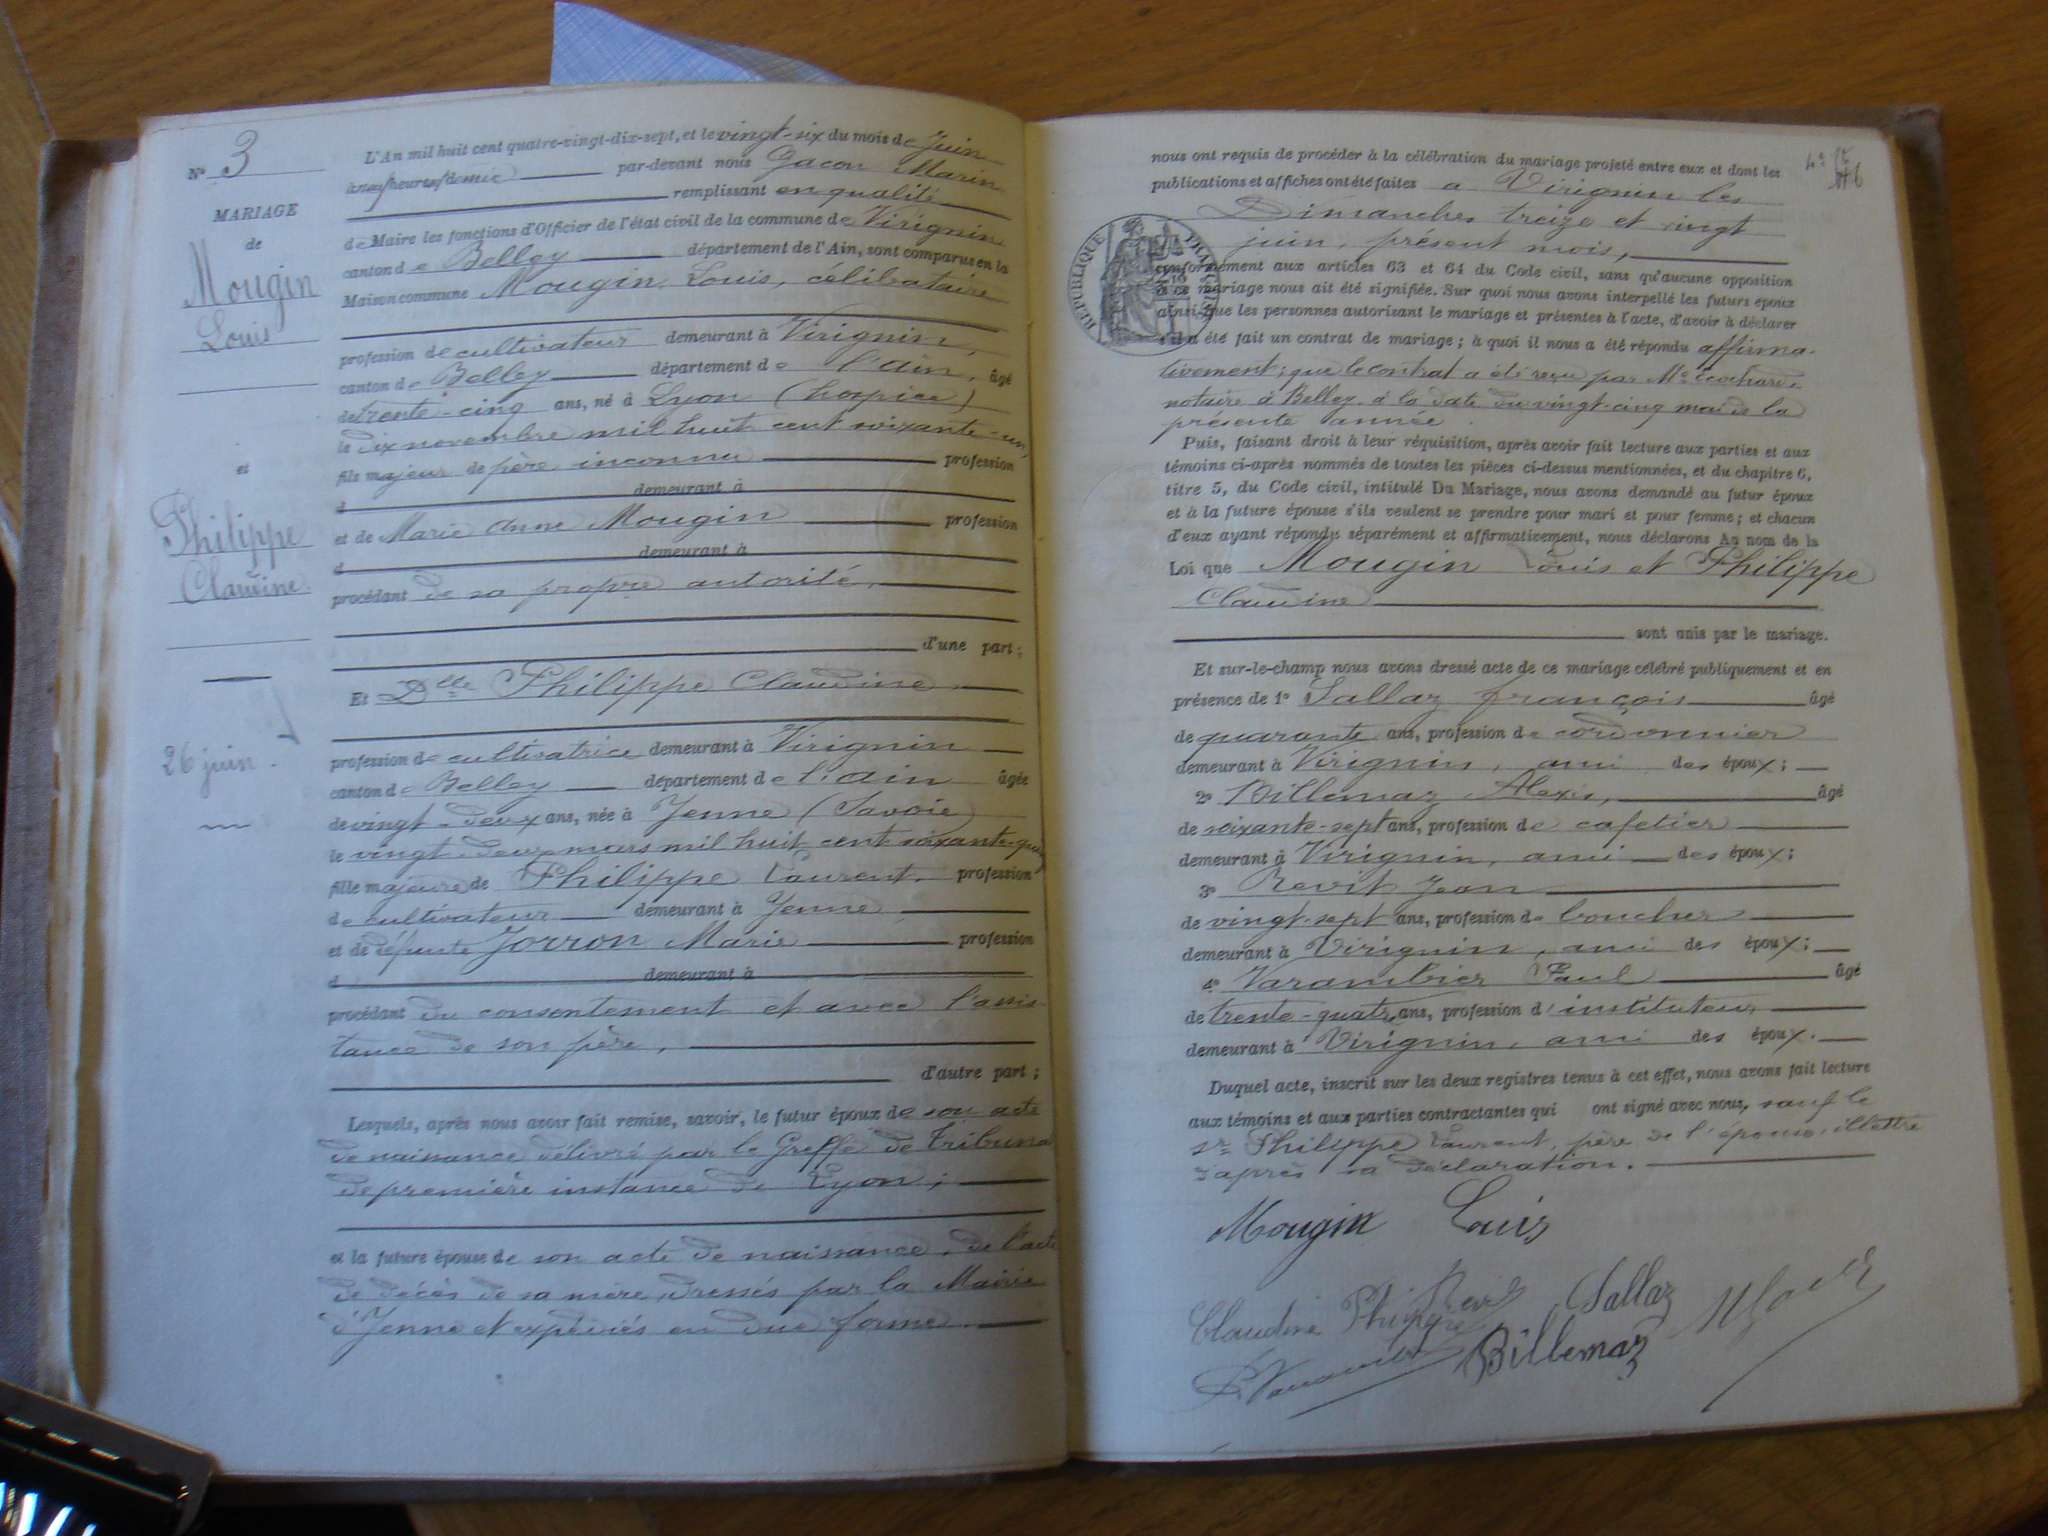 N° 3
MARIAGE
de
Mougin
Louis
et
Philippe
Claudine.
26 juin.
L'An mil huit cent quatre-vingt-dix-sept, et le vingt-six du mois de Juin
à neuf heures 1/2 demie par-devant nous Gacon Marin
remplissant en qualité
de Maire les fonctions d'Officier de l'état civil de la commune de Virignin
canton de Belley département de l'Ain, sont comparus en la
Maison commune Mougin Louis, célibataire
profession de cultivateur demeurant à Virignin,
canton de Belley département de l'ain, âgé
de trente-cinq ans, né à Lyon (hospice)
le dix novembre mil huit cent soixante-un,
fils majeur de père inconnu profession
d demeurant à
et de Marie Anne Mougin profession
d demeurant à
procédant de sa propre autorité,
d'une part;
Et Dlle Philippe Claudine
profession de cultivatrice demeurant à Virignin
canton de Belley département de l'ain âgée
de vingt-deux ans, née à Yenne (Savoie)
le vingt-deux mars mil huit cent soixante-quinze
fille majeure de Philippe Laurent, profession
de cultivateur demeurant à Yenne
et de défunte Jorron Marie profession
d demeurant à
procédant du consentement et avec l'assis-
tance de son père,
d'autre part;
Lesquels, après nous avoir fait remise, savoir, le futur époux de son acte
de naissance délivré par le Greffe de Tribunal
de première instance de Lyon;
et la future épouse de son acte de naissance, de l'acte
de décès de sa mère, dressés par la Mairie
d'Yenne et expédiés en due forme
nous ont requis de procéder à la célébration du mariage projeté entre eux et dont les
publications et affiches ont été faites à Virignin les
Dimanches treize et vingt
juin, présent mois,
RÉPUBLIQUE FRANÇAISE
conformément aux articles 63 et 64 du Code civil, sans qu'aucune opposition
à ce mariage nous ait été signifiée. Sur quoi nous avons interpellé les futurs époux
ainsi que les personnes autorisant le mariage et présentes à l'acte, d'avoir à déclarer
s'il a été fait un contrat de mariage; à quoi il nous a été répondu affirma-
tivement; que le contrat a été reçu par Me
notaire à Belley à la date du vingt-cinq mai de la
présente année.
Puis, faisant droit à leur réquisition, après avoir fait lecture aux parties et aux
témoins ci-après nommés de toutes les pièces ci-dessus mentionnées, et du chapitre 6,
titre 5, du Code civil, intitulé Du Mariage, nous avons demandé au futur époux
et à la future épouse s'ils veulent se prendre pour mari et pour femme; et chacun
d'eux ayant répondu séparément et affirmativement, nous déclarons Au nom de la
Loi que Mougin Louis et Philippe
Claudine
sont unis par le mariage.
Et sur-le-champ nous avons dressé acte de ce mariage célébré publiquement et en
présence de 1° Sallaz françois âgé
de quarante ans, profession de cordonnier
demeurant à Virignin, ami des époux;
2° Billemaz Alexis, âgé
de soixante-sept ans, profession de cafetier
demeurant à Virignin, ami des époux;
3° Revit Jean
de vingt-sept ans, profession de boucher
demeurant à Virignin, ami des époux;
4° Varambier Paul âgé
de trente-quatre ans, profession d'instituteur
demeurant à Virignin, ami des époux.
Duquel acte, inscrit sur les deux registres tenus à cet effet, nous avons fait lecture
aux témoins et aux parties contractantes qui ont signé avec nous, sauf le
sr Philippe Laurent, père de l'épouse illettré
d'après sa déclaration.
Mougin Louis
Claudine Philippe Revit Sallaz
Billemaz